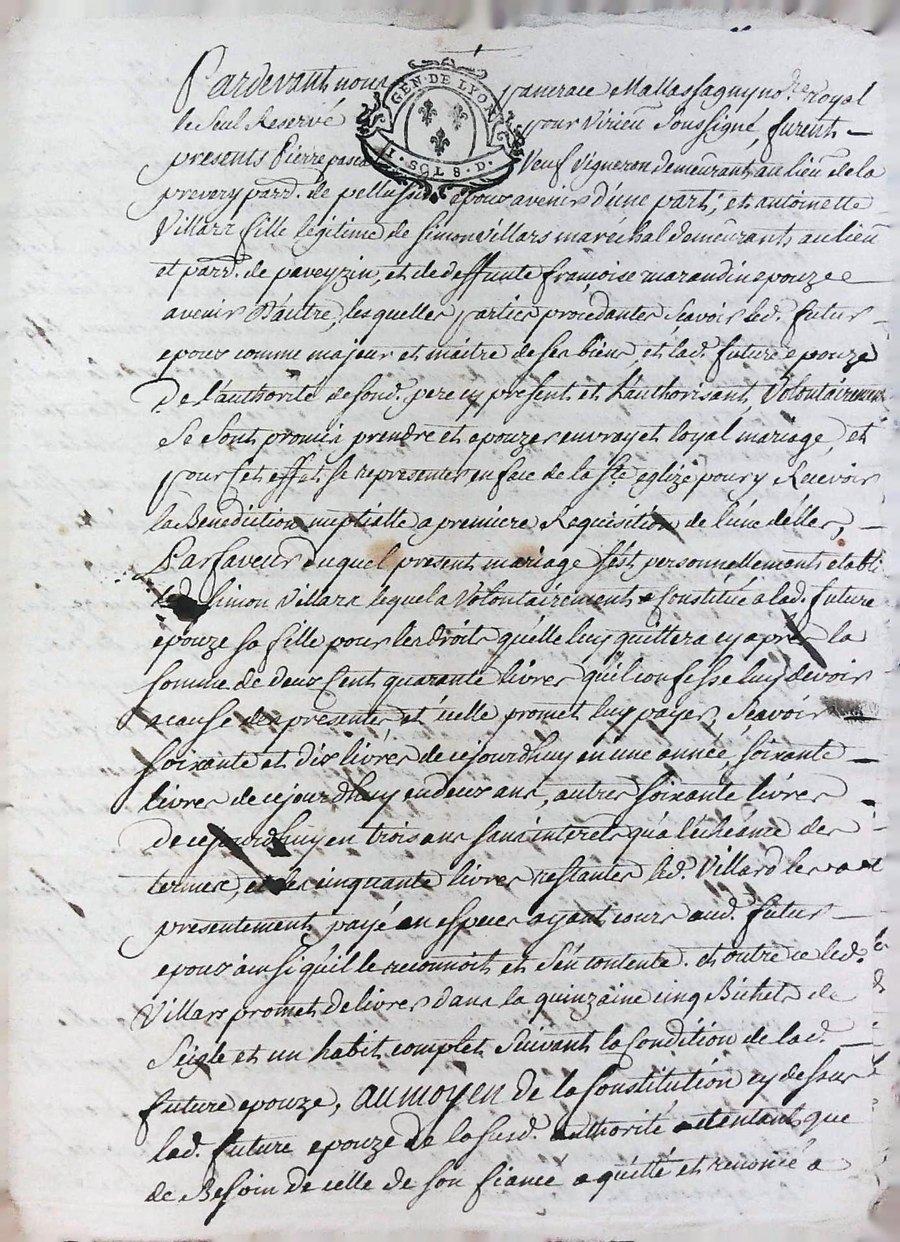 GEN · DE LYON
1 · SOL 8 · D ·
Pardevant nous pancrace Mallassagny no.re royal
le seul Reservé pour Virieu soussigné, furent
presents Pierre pasca Veuf vigneron demeurant au lieu de la
prevery parr. de pelussin epoux avenir d'une part, et antoinette
Villard fille legitime de simon Villars maréchal demeurants au lieu
et parr. de paveyzin, et de deffunte françoise marandin epouze
avenir d'autre, lesquelles parties procédantes scavoir led. futur
epoux comme majeur et maitre de ses biens, et lad. future epouze
De l'authorité de son d. pere cy present et l'authorisant, Volontairement
se sont promis prendre et epouzer en vray et loyal mariage, et
pour cet effet se representer en face de la ste eglize pour y Recevoir
la Benediction nuptialle a premiere Requisition de l'une d'elles,
Par faveur duquel present mariage s'est personnellement etabli
led. simon Villard lequel a Volontairement Constitué a lad. future
epouze sa fille pour les droits qu'elle luy quittera cy apres la
somme de deux cent quarante livres qu'il confesse luy devoir
a cause des presentes et icelle promet luy payer, scavoir
soixante et dix livres de cejourdhuy en une année, soixante
livres de cejourdhuy en deux ans, autres soixante livres
de cejourdhuy en trois ans sans interets qu'a l'échéance des
termes, et les cinquante livres restantes led. Villard les a
presentement payé en especes ayant cours aud. futur
epoux ainsi qu'il le reconnoit et s'en contente. et outre ce led.
Villars promet delivrer dans la quinzaine cinq Bichets de
Seigle et un habit complet suivant la Condition de lad.
future epouze, au moyen de la Constitution cy dessus
lad. future epouze de la susd. authorité et entant que
de Besoin de celle de son fiancé a quitté et renoncé a